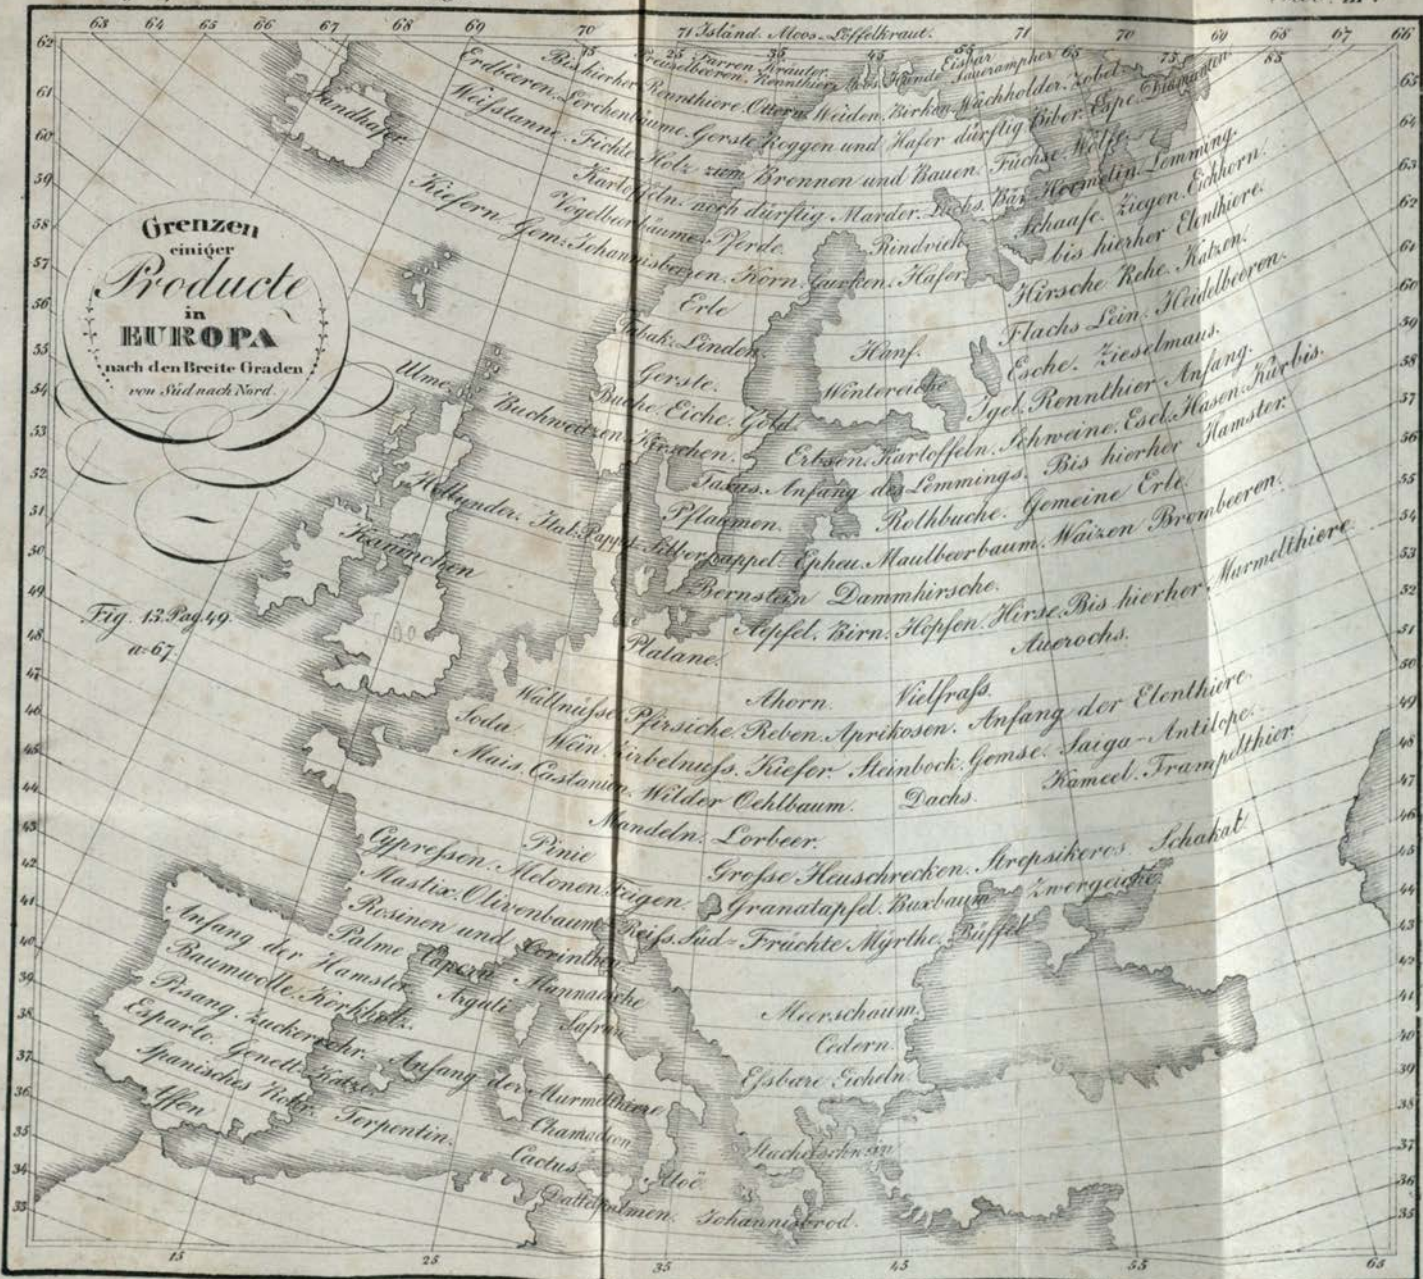 63 64 65 66 67 68 69 70 71 Island. Moos-Löffelkraut. 71 70 69 68 67 66
15 25 35 45 55 65 75 85
Farren Kräuter. Eisbär
Preuselbeeren. Rennthier Moos. Hunde Sauerampher
Bis hierher Rennthiere. Ottern. Weiden. Birken. Wachholder. Zobel
Erdbeeren. Lerchenbäume. Gerste Roggen und Hafer dürftig Biber. Espe.
Weifstanne. Fichte Holz zum Brennen und Bauen. Füchse. Wölfe.
Kartoffeln. noch dürftig Marder. Luchs. Bär. Hermelin. Lemming.
Vogelbeerbäume. Pferde. Rindvieh Schaafe. Ziegen. Eichhorn.
Kiefern. Gem. Johannisbeeren. Korn. Gurken. Hafer. bis hierher Elenthiere.
Sandhafer
Hirsche Rehe. Katzen.
Erle Flachs Lein. Heidelbeeren.
Tabak. Linden. Hanf. Esche. Zieselmaus.
Gerste. Wintereiche Igel. Rennthier Anfang.
Ulme. Buche. Eiche. Gold. Erbsen. Kartoffeln. Schweine. Esel. Hasen. Kürbis.
Buchweitzen. Kirschen. Taxus. Anfang des Lemmings. Bis hierher Hamster.
Pflaumen. Rothbuche. Gemeine Erle.
Hollunder. Ital. Pappel. Silberpappel. Epheu. Maulbeerbaum. Waizen Brombeeren.
Kaninchen
Bernstein Dammhirsche.
Aepfel. Birn. Hopfen. Hirse. Bis hierher Murmelthiere
Platane. Auerochs.
Ahorn. Vielfrafs.
Wallnüfse Pfirsiche. Reben. Aprikosen. Anfang der Elenthiere.
Soda Wein. Zirbelnufs. Kiefer. Steinbock. Gemse. Saiga-Antilope.
Mais. Castanien. Wilder Oehlbaum. Dachs. Kameel. Trampelthier.
Mandeln. Lorbeer.
Pinie Grofse Heuschrecken. Strepsikeros Schakal
Cyprefsen. Melonen. Feigen. Granatapfel. Buxbaum Zwergeiche
Mastix. Olivenbaum Reifs. Süd-Früchte Myrthe. Büffel
Rosinen und Corinthen.
Anfang der Hamster
Palme Capern Mannaesche
Baumwolle. Korkholz. Arguli Safran Meerschaum.
Pisang. Zuckerrohr. Anfang der Murmelthiere Cedern.
Esparto. Genett-Katze. Efsbare Eicheln
Spanisches Rohr. Terpentin. Chamäleon
Affen Cactus. Stachelschwein
Aloë
Dattelpalmen. Johannisbrod.
Grenzen
einiger
Producte
in
EUROPA
nach den Breite Graden
von Süd nach Nord.
Fig. 13. Pag. 49.
a=67.
62
61
60
59
58
57
56
55
54
53
52
51
50
49
48
47
46
45
44
43
42
41
40
39
38
37
36
35
34
33
65
64
63
62
61
60
59
58
57
56
55
54
53
52
51
50
49
48
47
46
45
44
43
42
41
40
39
38
37
36
35
15 25 35 45 55 65